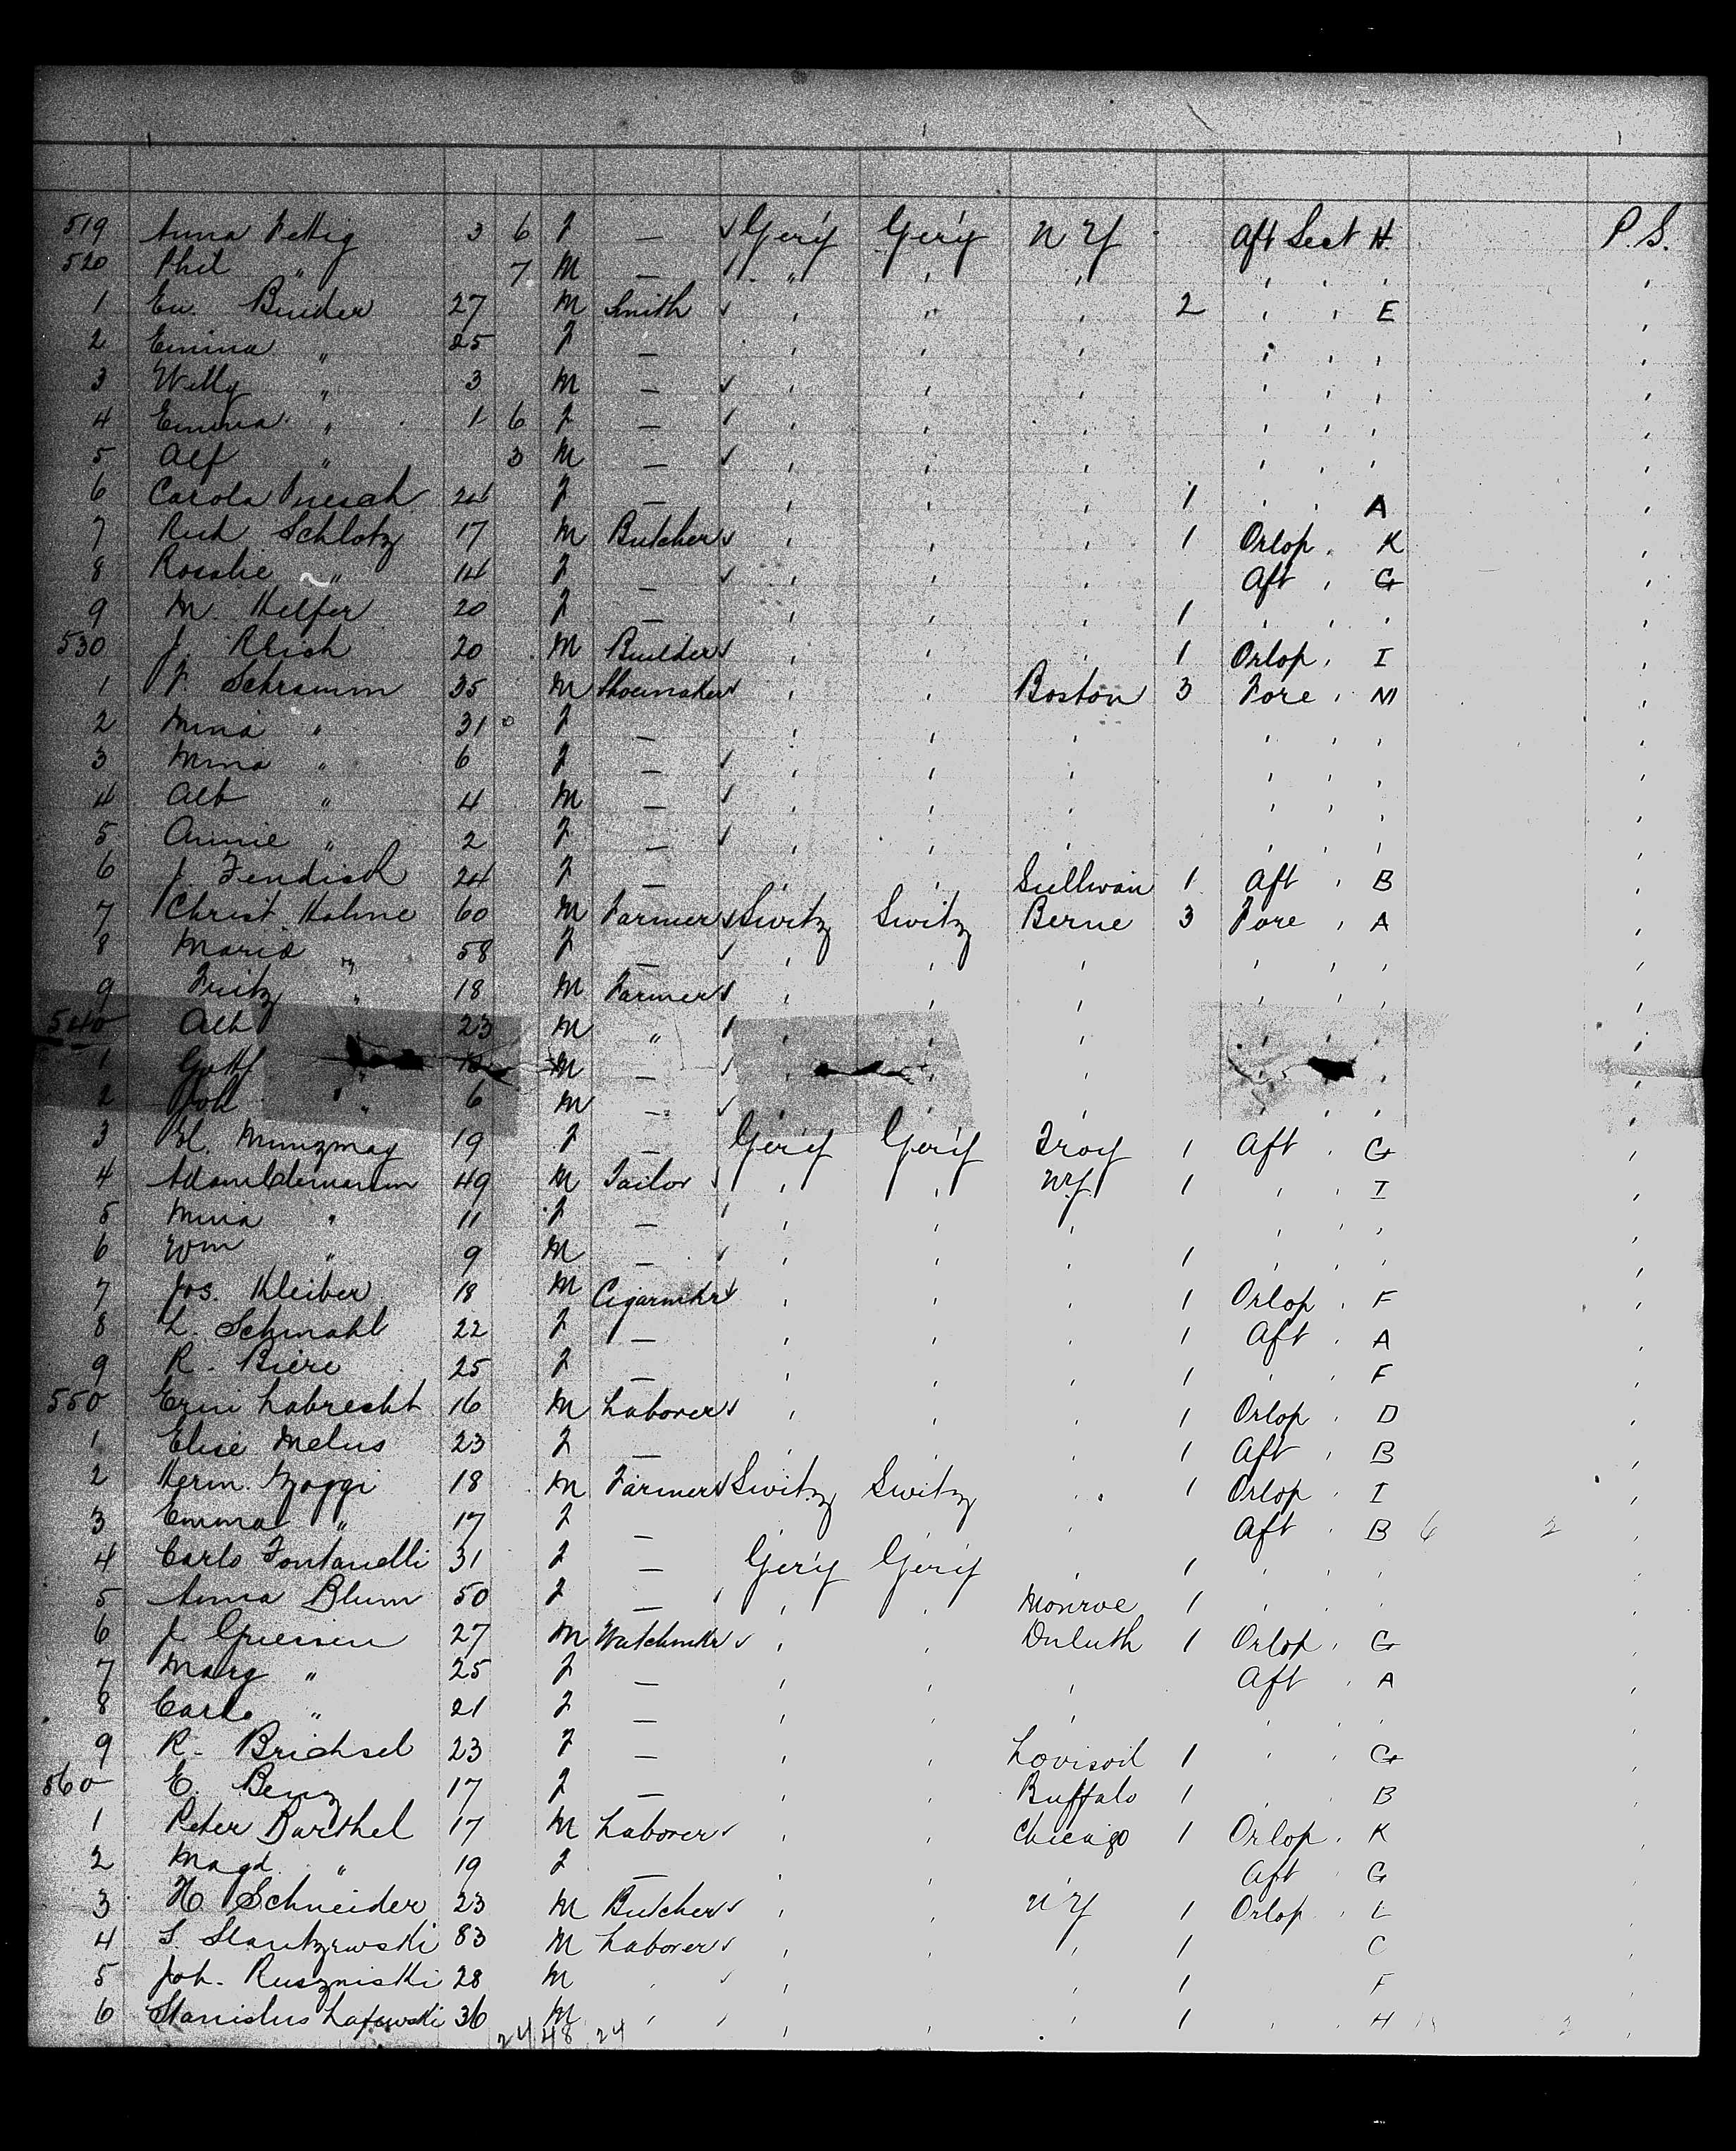 519 Anna Fettig 3 6 F — ✓ Ger'y Ger'y N Y Aft Sect H. P. S.
520 Phil " 7 M — ✓ " " " " " " "
1 Eu. Binder 27 M Smith ✓ " " " 2 " " E "
2 Emma " 25 F — " " " " " " "
3 Willy " 3 M — ✓ " " " " " " "
4 Emma " 1 6 F — ✓ " " " " " " "
5 Alf " 3 M — ✓ " " " " " " "
6 Carola 24 F — " " " 1 " " A "
7 Rich Schlotz 17 M Butcher ✓ " " " 1 Orlop " K "
8 Rosalie " 14 F — ✓ " " " Aft " G "
9 M. Helfer 20 F — " " " 1 " " " "
530 J. Reich 20 M Builder ✓ " " " 1 Orlop " I "
1 F. Schramm 35 M Shoemaker ✓ " " Boston 3 Fore " M "
2 Mina " 31 F — " " " " " " "
3 Mina " 6 F — ✓ " " " " " " "
4 Alb " 4 M — ✓ " " " " " " "
5 Annie " 2 F — ✓ " " " " " " "
6 J. Fendich 24 F — " " Sullivan 1 Aft " B "
7 Christ Hahne 60 M Farmer ✓ Switz Switz Berne 3 Fore " A "
8 Maria " 58 F — ✓ " " " " " " "
9 Fritz " 18 M Farmer ✓ " " " " " " "
540 Alb " 23 M " ✓ " " " " " " "
1 Gottf " M — ✓ " " " " " "
2 Joh " 6 M — ✓ " " " " " " "
3 H. Munzmay 19 F — Ger'y Ger'y Troy 1 Aft " G "
4 Adam 49 M Tailor ✓ " " NY 1 " " I "
5 Mina " 11 F — ✓ " " " " " " "
6 Wm " 9 M — ✓ " " " 1 " " " "
7 Jos. Kleiber 18 M Cigarmkr ✓ " " " 1 Orlop " F "
8 L. Schmahl 22 F — " " " 1 Aft " A "
9 R. Biere 25 F — " " " 1 " " F "
550 Labrecht 16 M Laborer ✓ " " " 1 Orlop " D "
1 Elise Melus 23 F — " " " 1 Aft " B "
2 Herm. Zoggi 18 M Farmer ✓ Switz Switz " 1 Orlop " I "
3 Emma " 17 F — " Aft " B 6 2 "
4 Carlo Fontanelli 31 F — Ger'y Ger'y " 1 " " " "
5 Anna Blum 50 F — ✓ " " Monroe 1 " " " "
6 J. Griessen 27 M Watchmkr ✓ " " Duluth 1 Orlop " G "
7 Marg " 25 F — " " " Aft " A "
8 Carlo " 21 F — " " " " " " "
9 R. Brichsel 23 F — " " Lovisoil 1 " " G "
560 E. Benz 17 F — " " Buffalo 1 " " B "
1 Peter Barthel 17 M Laborer ✓ " " Chicago 1 Orlop " K "
2 Magd. " 19 F — " " " Aft " G "
3 H Schneider 23 M Butcher ✓ " " N Y 1 Orlop " L "
4 S. Slantzewski 83 M Laborer ✓ " " " 1 " " C "
5 Joh. Ruszniski 28 M " ✓ " " " 1 " " F "
6 Stanislus Lafowski 36 M " ✓ " " " 1 " " H "
24 48 24